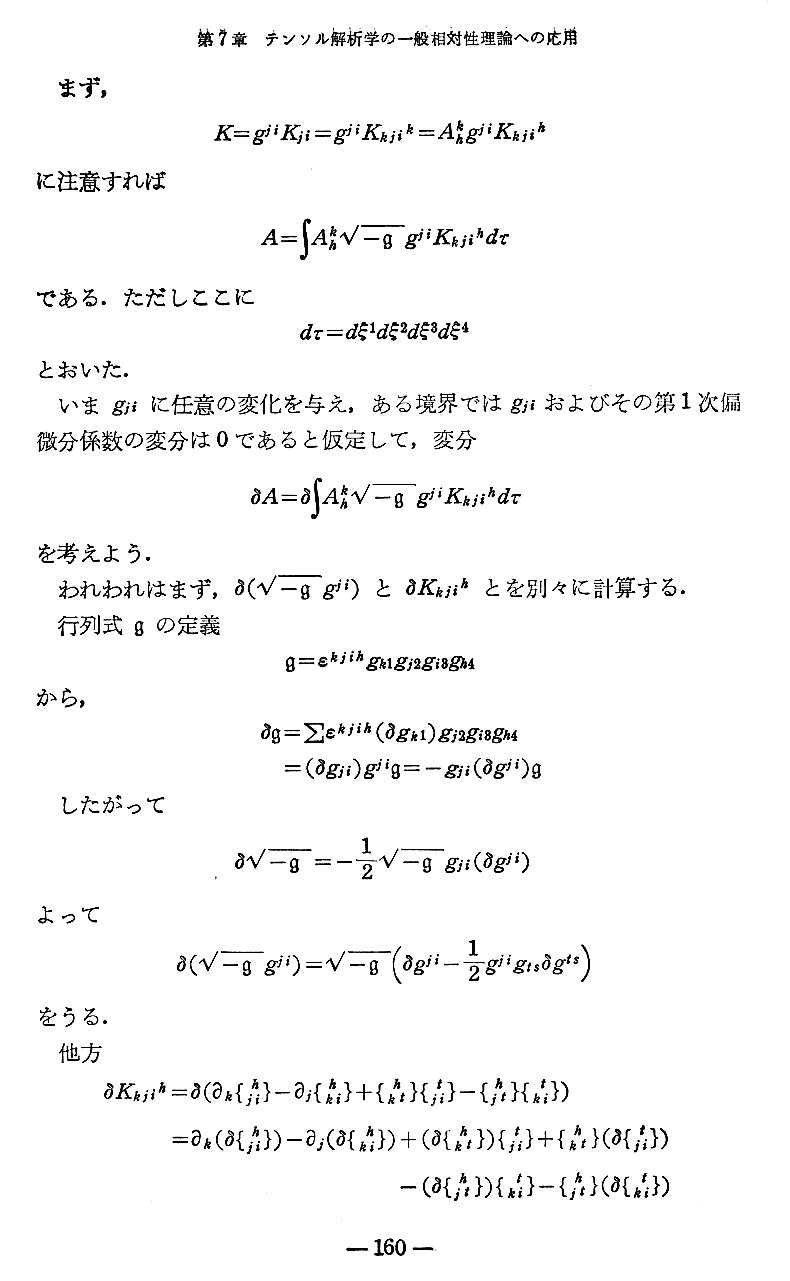 第7章 テンソル解析学の一般相対性理論への応用
まず,
K=g^{ji}K_{ji}=g^{ji}K_{kji}{}^k=A^k_h g^{ji}K_{kji}{}^h
に注意すれば
A=∫A^k_h√-𝔤 g^{ji}K_{kji}{}^h dτ
である.ただしここに
dτ=dξ¹dξ²dξ³dξ⁴
とおいた.
いま g_{ji} に任意の変化を与え,ある境界では g_{ji} およびその第1次偏
微分係数の変分は0であると仮定して,変分
δA=δ∫A^k_h√-𝔤 g^{ji}K_{kji}{}^h dτ
を考えよう.
われわれはまず,δ(√-𝔤 g^{ji}) と δK_{kji}{}^h とを別々に計算する.
行列式 𝔤 の定義
𝔤=ε^{kjih}g_{k1}g_{j2}g_{i3}g_{h4}
から,
δ𝔤=∑ε^{kjih}(δg_{k1})g_{j2}g_{i3}g_{h4}
=(δg_{ji})g^{ji}𝔤=-g_{ji}(δg^{ji})𝔤
したがって
δ√-𝔤=-\frac{1}{2}√-𝔤 g_{ji}(δg^{ji})
よって
δ(√-𝔤 g^{ji})=√-𝔤(δg^{ji}-\frac{1}{2}g^{ji}g_{ts}δg^{ts})
をうる.
他方
δK_{kji}{}^h=δ(∂_k{^h_{ji}}-∂_j{^h_{ki}}+{^h_{kt}}{^t_{ji}}-{^h_{jt}}{^t_{ki}})
=∂_k(δ{^h_{ji}})-∂_j(δ{^h_{ki}})+(δ{^h_{kt}}){^t_{ji}}+{^h_{kt}}(δ{^t_{ji}})
-(δ{^h_{jt}}){^t_{ki}}-{^h_{jt}}(δ{^t_{ki}})
— 160 —